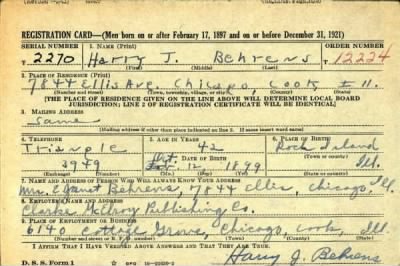 REGISTRATION CARD—(Men born on or after February 17, 1897 and on or before December 31, 1921)
SERIAL NUMBER 1. NAME (Print) ORDER NUMBER
T 2270 Harry J. Behrens 12224
(First) (Middle) (Last)
2. PLACE OF RESIDENCE (Print)
7844 Ellis Ave, Chicago, Cook Ill.
(Number and street) (Town, township, village, or city) (County) (State)
[THE PLACE OF RESIDENCE GIVEN ON THE LINE ABOVE WILL DETERMINE LOCAL BOARD
JURISDICTION; LINE 2 OF REGISTRATION CERTIFICATE WILL BE IDENTICAL]
3. MAILING ADDRESS
Same
[Mailing address if other than place indicated on line 2. If same insert word same]
4. TELEPHONE 5. AGE IN YEARS 6. PLACE OF BIRTH
Triangle 42 Rock Island
DATE OF BIRTH (Town or county)
3949 12 1899 Ill.
(Exchange) (Number) (Mo.) (Day) (Yr.) (State or country)
7. NAME AND ADDRESS OF PERSON WHO WILL ALWAYS KNOW YOUR ADDRESS
Mrs. Janet Behrens, 7844 Ellis, Chicago, Ill.
8. EMPLOYER'S NAME AND ADDRESS
Clarke McElroy Publishing Co.
9. PLACE OF EMPLOYMENT OR BUSINESS
6140 Cottage Grove, Chicago, Cook, Ill.
(Number and street or R. F. D. number) (Town) (County) (State)
I AFFIRM THAT I HAVE VERIFIED ABOVE ANSWERS AND THAT THEY ARE TRUE.
D. S. S. Form 1 Harry J. Behrens